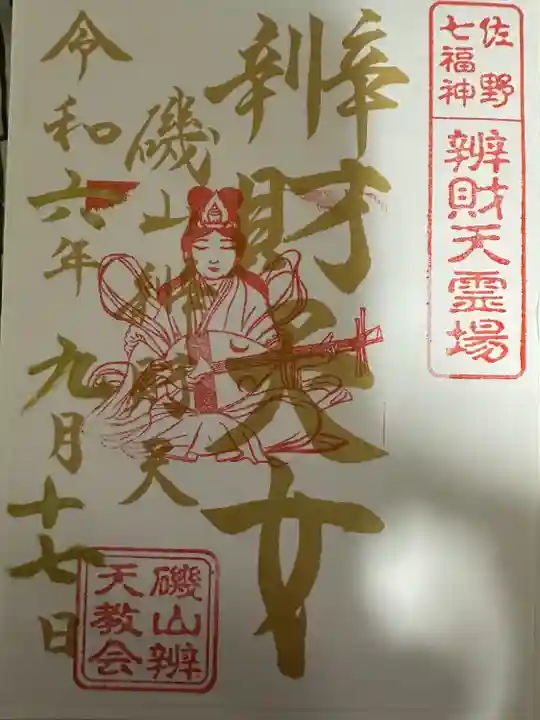 佐野
七福神
辨財天霊場
辨財天女
磯山辨財天
令和六年九月十七日
磯山辨
天教会